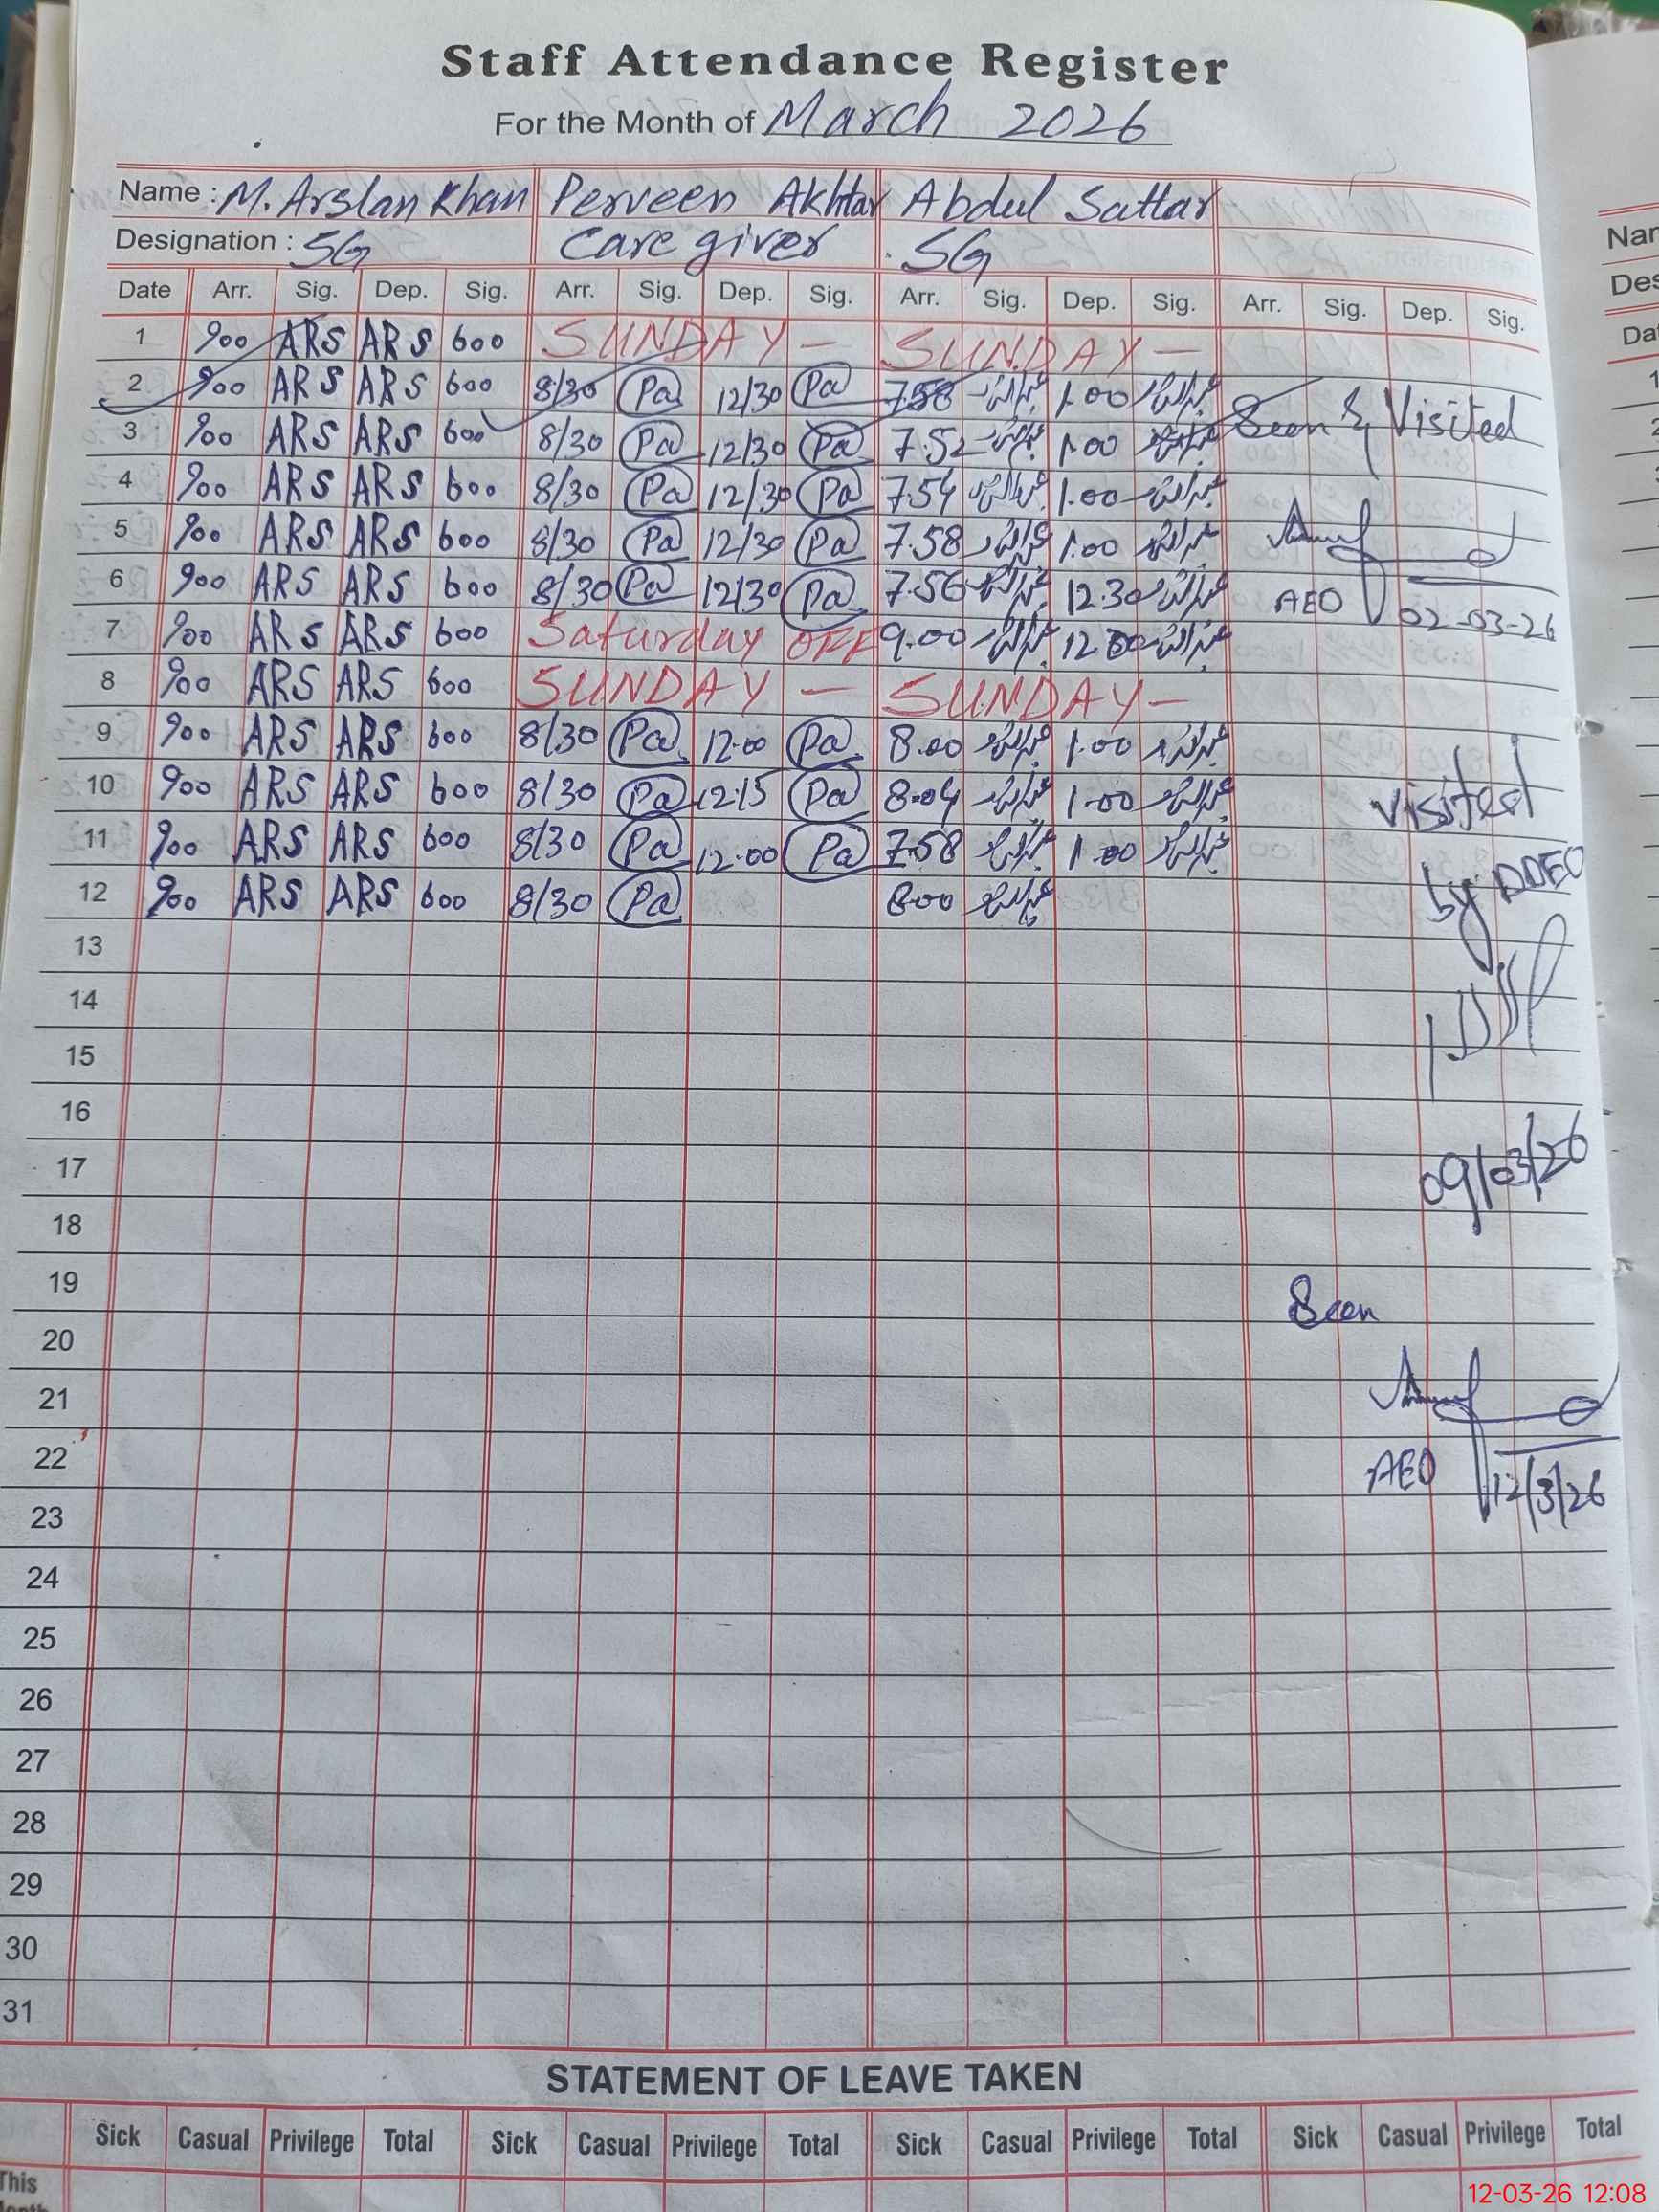 Staff Attendance Register
For the Month of March 2026
Name : M. Arslan Khan Perveen Akhtar Abdul Sattar
Designation : SG Care giver SG
Date Arr. Sig. Dep. Sig. Arr. Sig. Dep. Sig. Arr. Sig. Dep. Sig. Arr. Sig. Dep. Sig.
1 900 ARS ARS 600 SUNDAY - SUNDAY -
2 900 ARS ARS 600 8/30 Pa 12/30 Pa 7.58 عبدالستار 1.00 عبدالستار
Seen & Visited
3 900 ARS ARS 600 8/30 Pa 12/30 Pa 7.52 عبدالستار 1.00 عبدالستار
4 900 ARS ARS 600 8/30 Pa 12/30 Pa 7.54 عبدالستار 1.00 عبدالستار
5 900 ARS ARS 600 8/30 Pa 12/30 Pa 7.58 عبدالستار 1.00 عبدالستار
6 900 ARS ARS 600 8/30 Pa 12/30 Pa 7.56 عبدالستار 12.30 عبدالستار
AEO 02-03-26
7 900 ARS ARS 600 Saturday OFF 9.00 عبدالستار عبدالستار
8 900 ARS ARS 600 SUNDAY - SUNDAY -
9 900 ARS ARS 600 8/30 Pa 12.00 Pa 8.00 عبدالستار 1.00 عبدالستار
10 900 ARS ARS 600 8/30 Pa 12.15 Pa 8.04 عبدالستار 1.00 عبدالستار
visited
11 900 ARS ARS 600 8/30 Pa 12.00 Pa 7.58 عبدالستار 1.00 عبدالستار
12 900 ARS ARS 600 8/30 Pa 8.00 عبدالستار
by DDEO
13
14
15
16
17
09/03/26
18
19
Seen
20
21
22
AEO 12/3/26
23
24
25
26
27
28
29
30
31
STATEMENT OF LEAVE TAKEN
Sick Casual Privilege Total Sick Casual Privilege Total Sick Casual Privilege Total Sick Casual Privilege Total
This
12-03-26 12:08
Nar
Des
Da